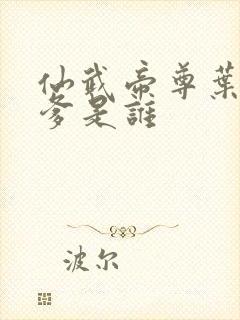 仙武帝尊葉
爹是誰
波尔